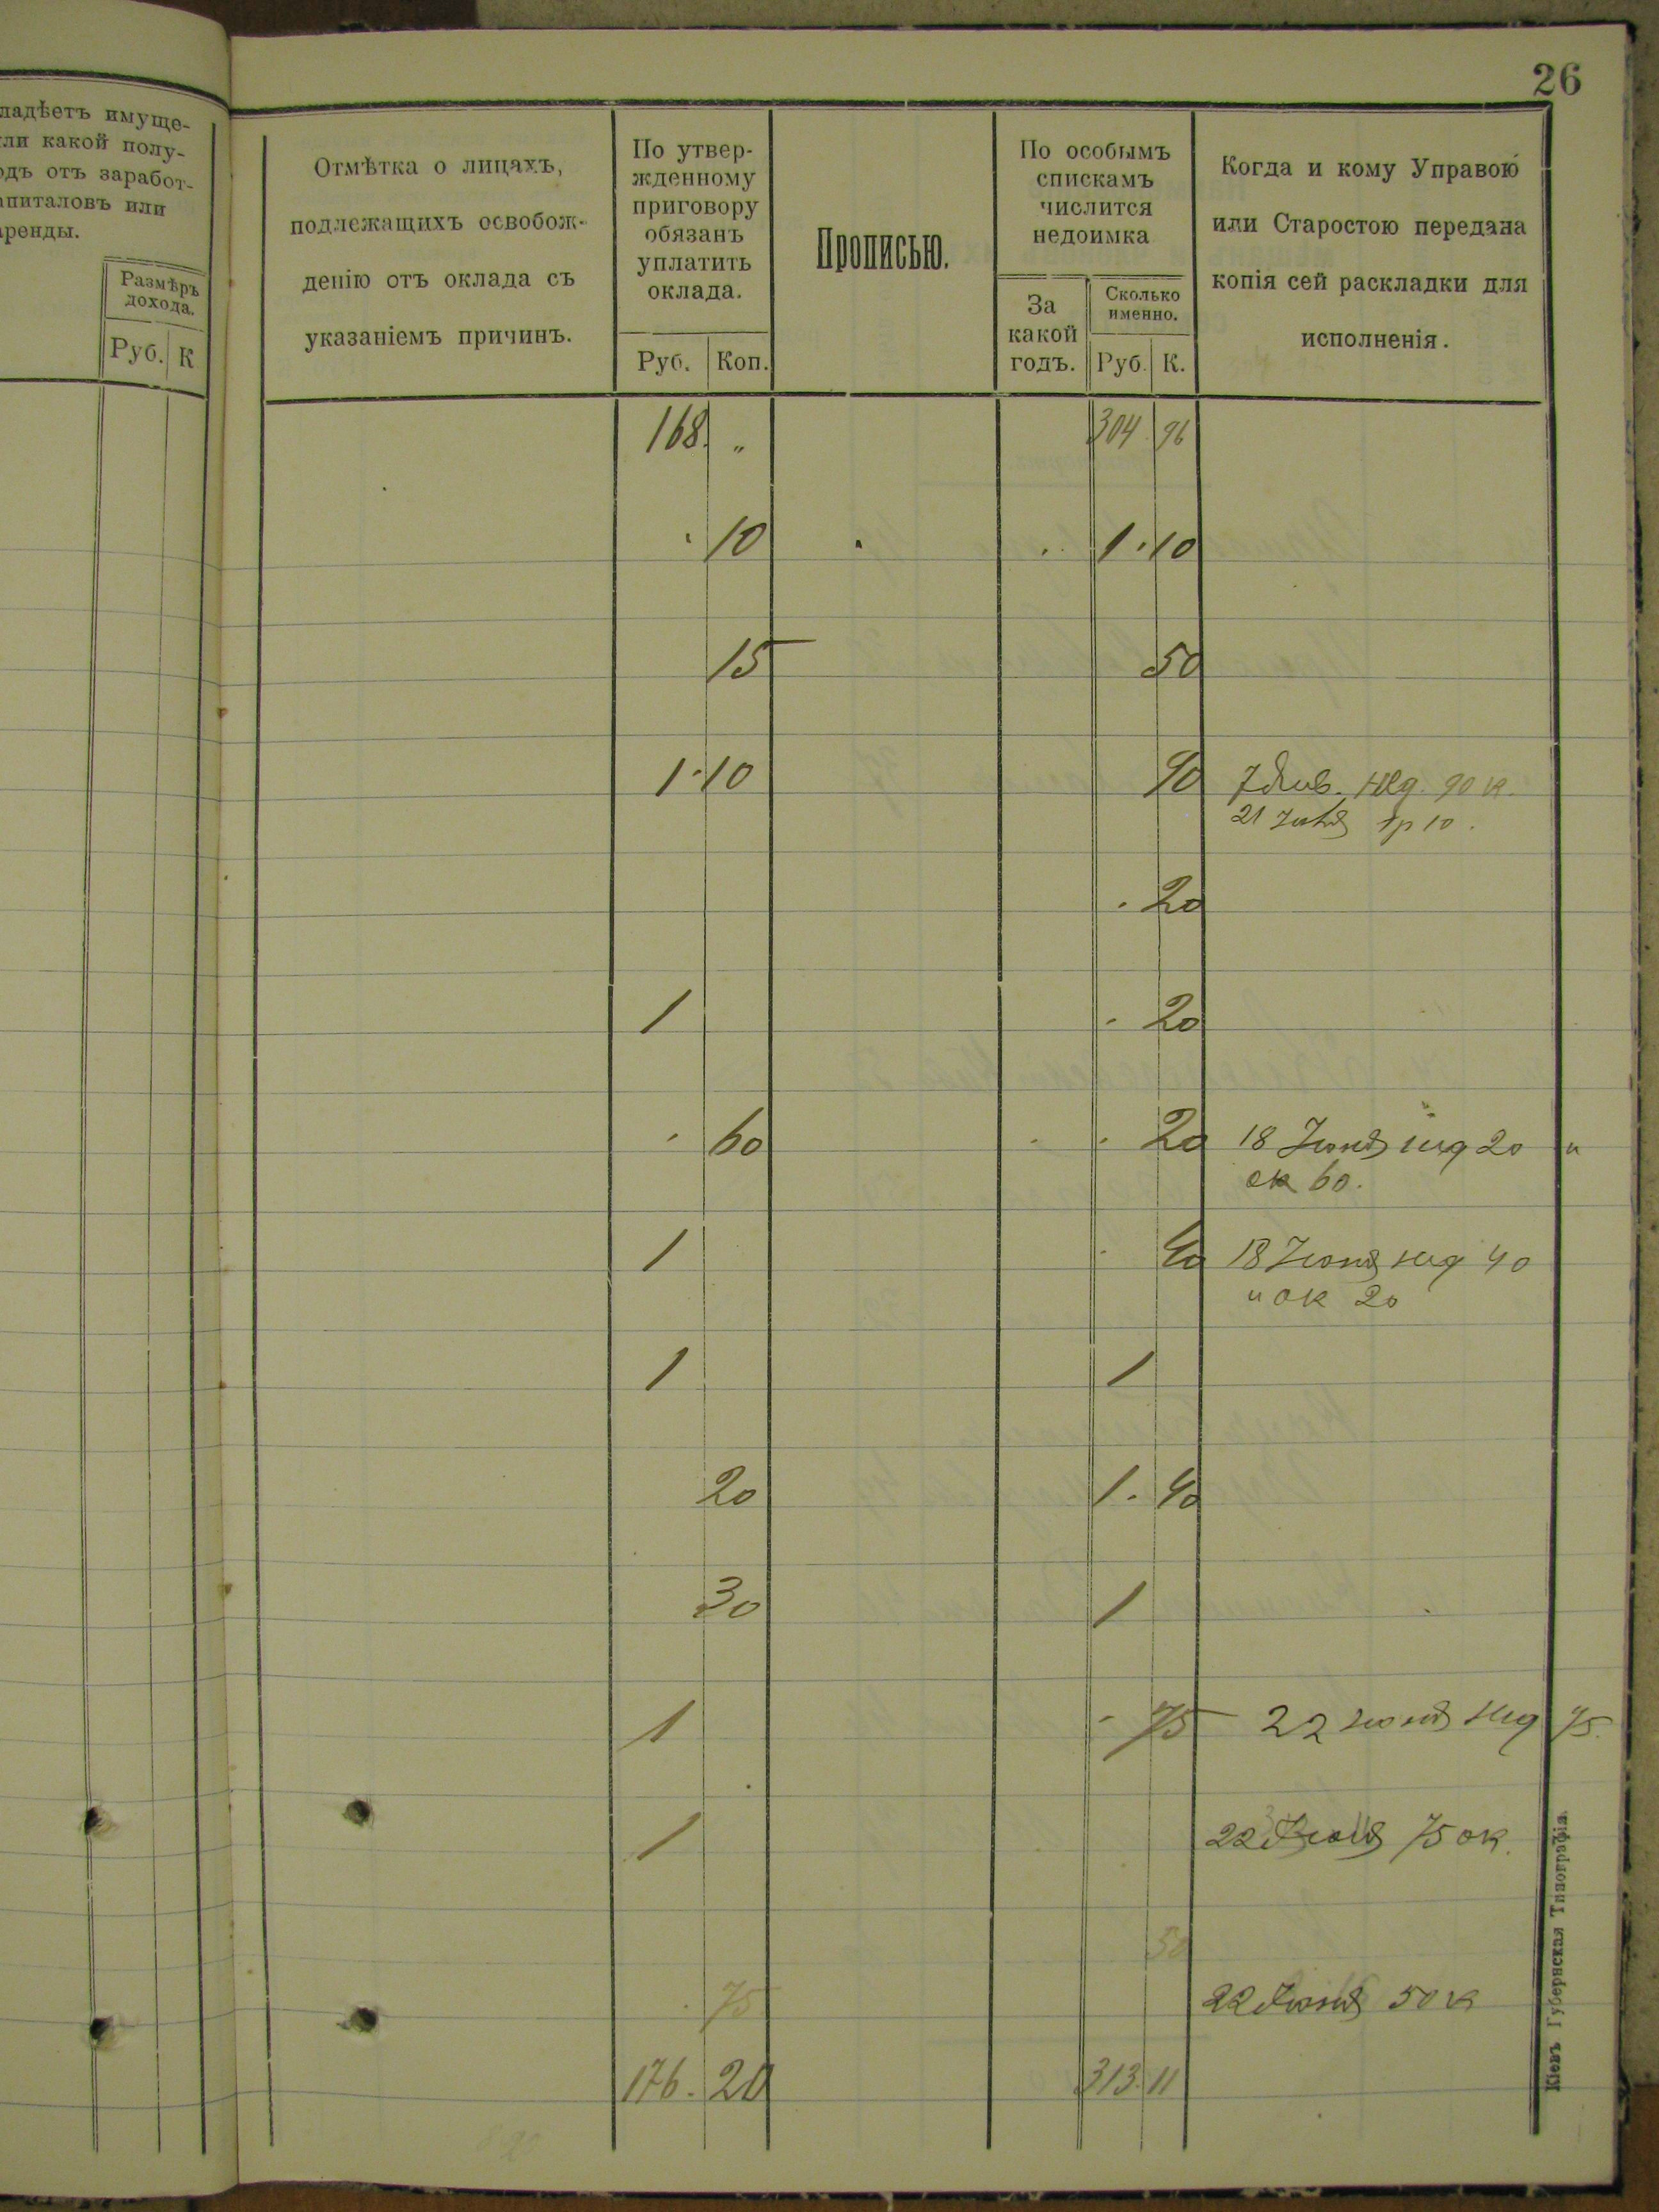 26
ладѣетъ имуще-
ли какой полу-
одъ отъ заработ-
апиталовъ или
аренды.
Размѣръ
дохода.
Руб. К
Отмѣтка о лицахъ,
подлежащихъ освобож-
денію отъ оклада съ
указаніемъ причинъ.
По утвер-
жденному
приговору
обязанъ
уплатить
оклада.
Руб. Коп.
Прописью.
По особымъ
спискамъ
числится
недоимка
За
какой
годъ.
Сколько
именно.
Руб. К.
Когда и кому Управою
или Старостою передана
копія сей раскладки для
исполненія.
168. „ 304 96
10 1 10
15 50
1 10 90 7 Янв. нед. 90 к.
21 1р 10.
20
1 20
60 20 18 Июня нед 20 и
ок 60.
1 40 18 Июня нед 40
и ок 20
1 1
20 1. 40
30 1
1 75 22 июня нед 75.
1 22 75 ок.
50
75 22 Июня 50 к
176. 20 313. 11
Кіевъ Губернская Типографія.